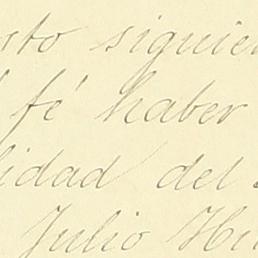 sto siguien
fé haber
lidad del
Julio Hi